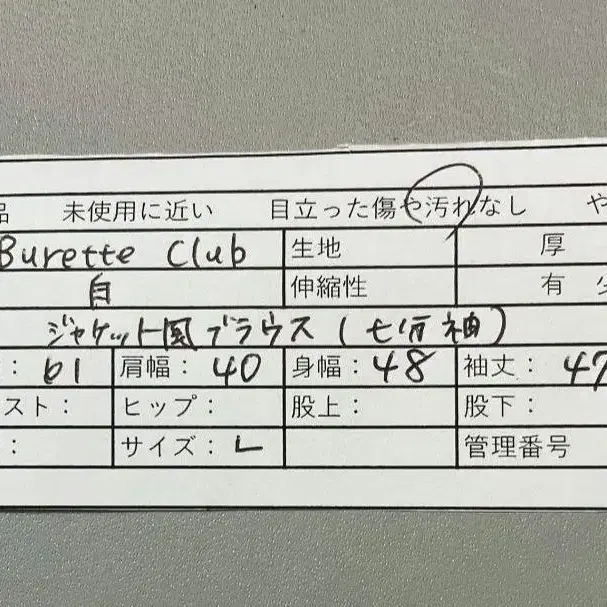 品 未使用に近い 目立った傷や汚れなし や
Burette Club 生地 厚
白 伸縮性 有 少
ジャケット風ブラウス(七分袖)
: 61 肩幅: 40 身幅: 48 袖丈: 47
スト: ヒップ: 股上: 股下:
: サイズ: L 管理番号